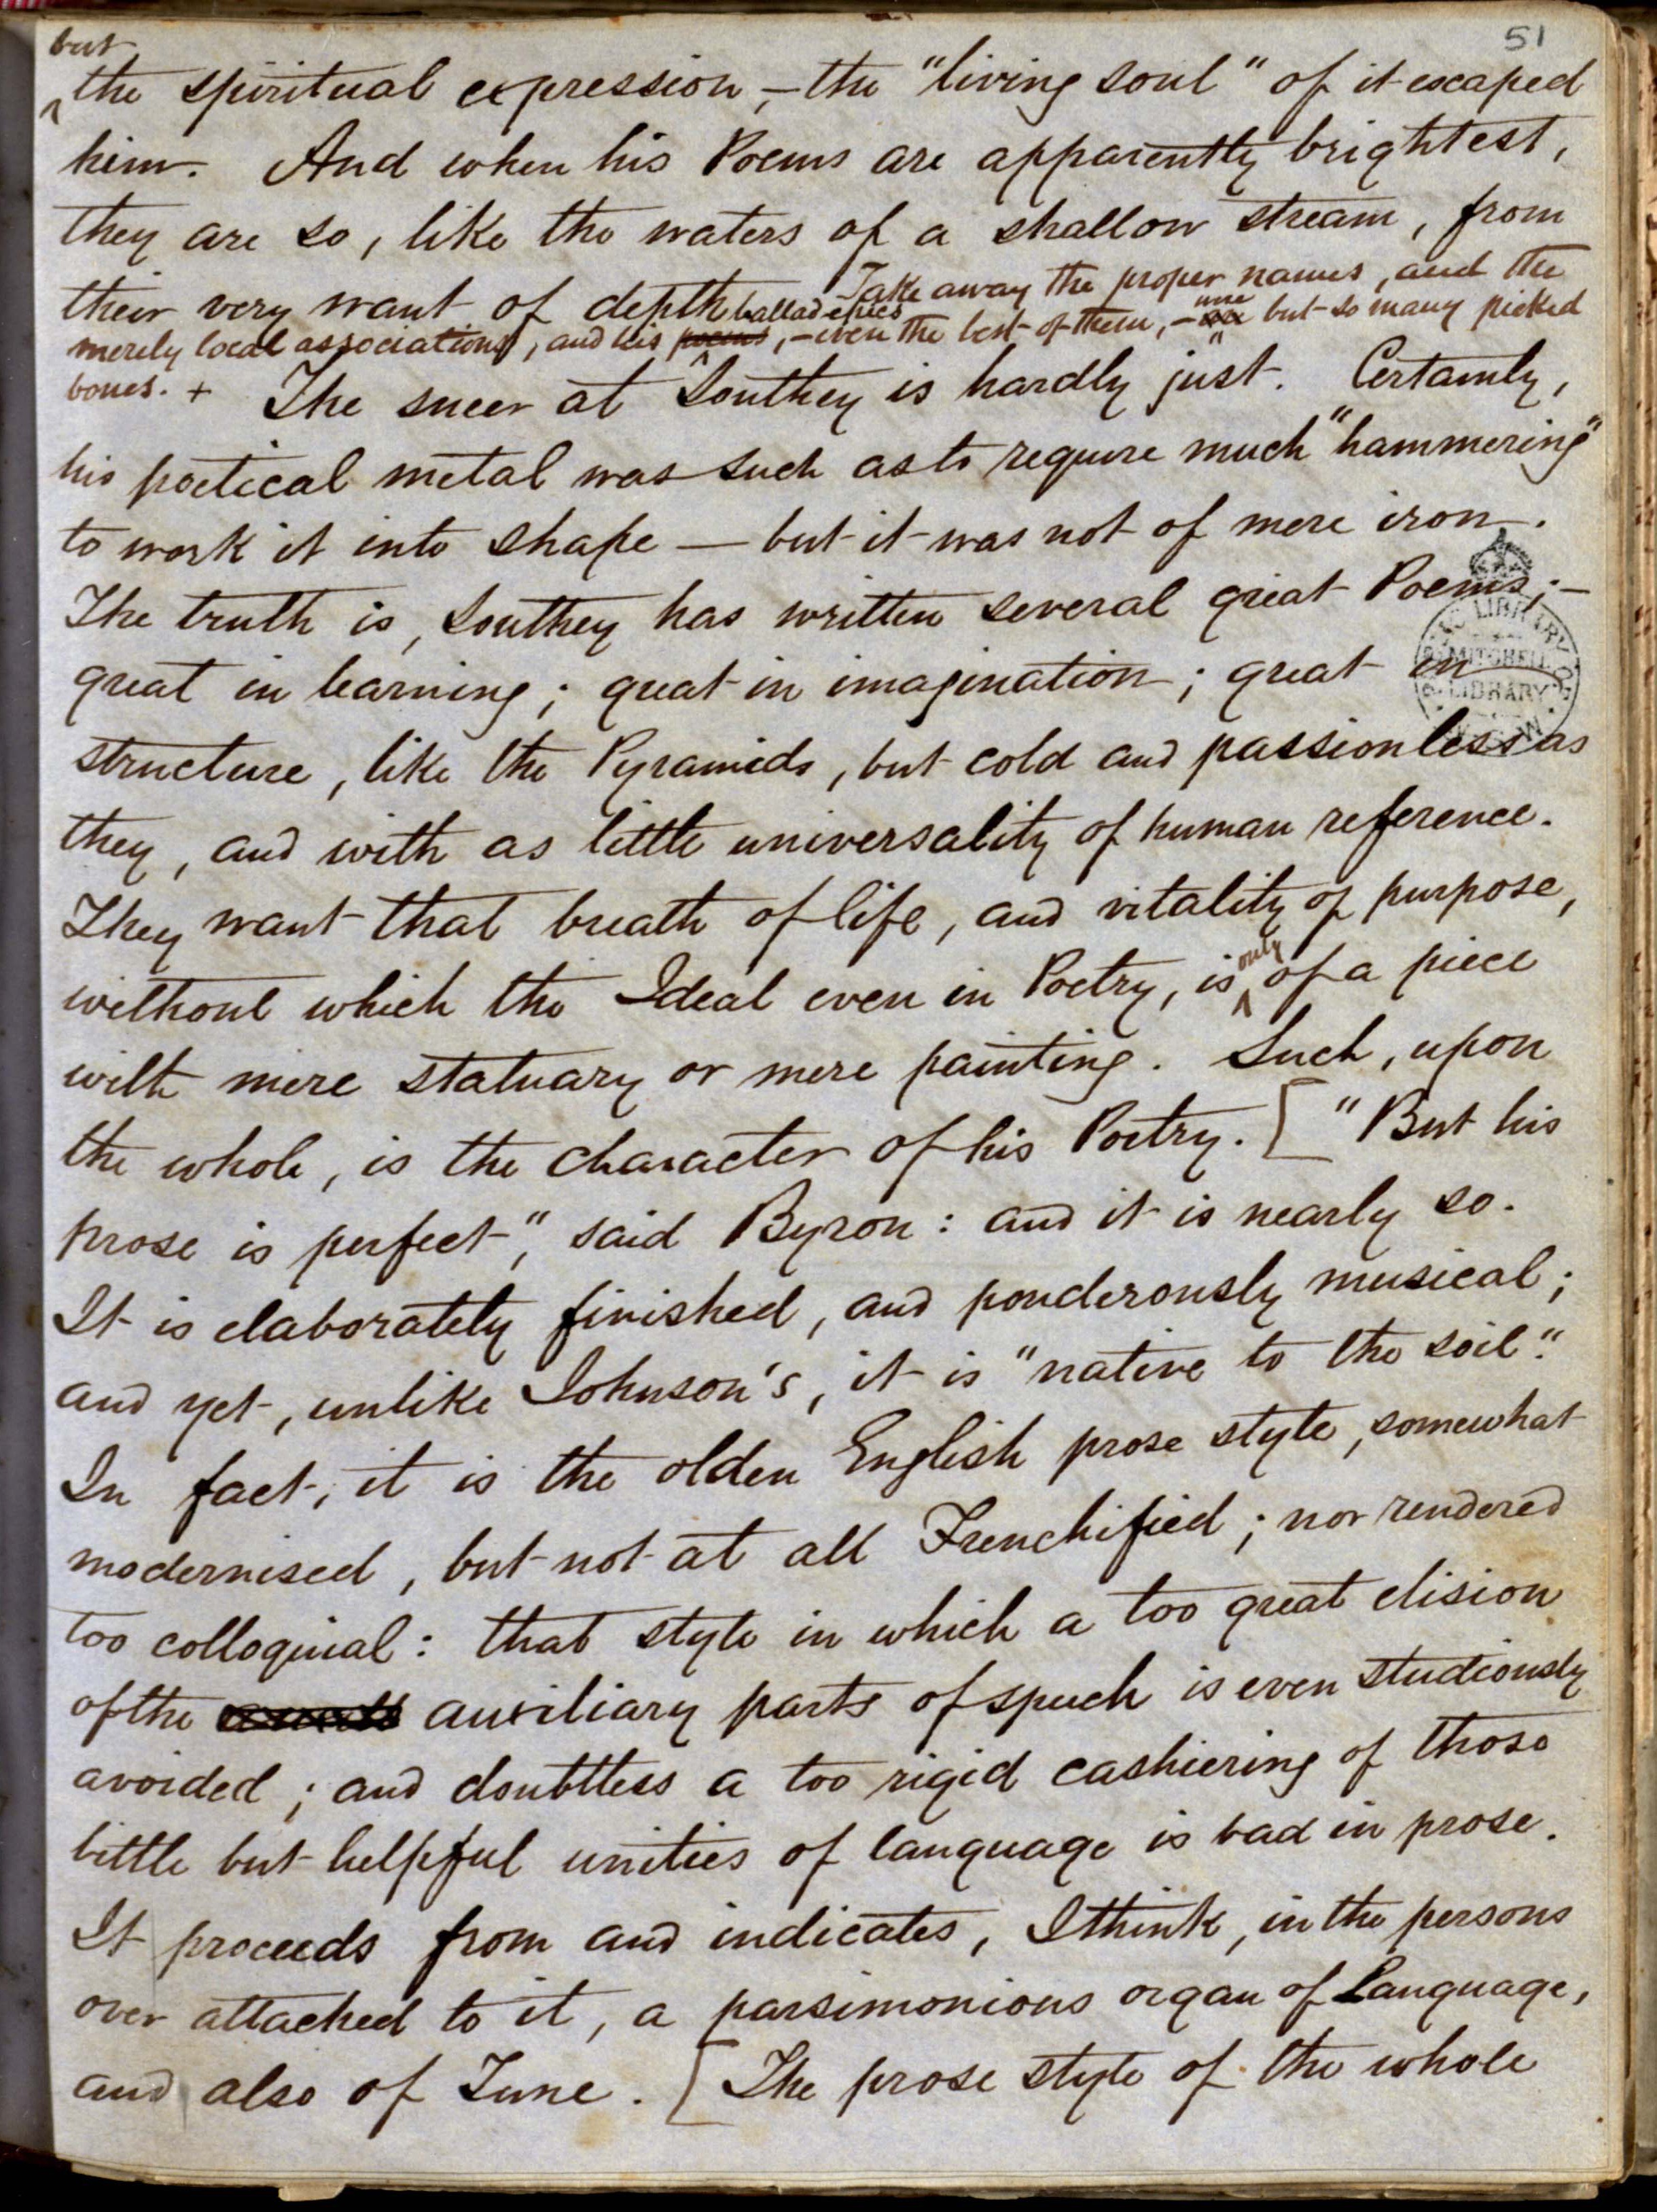 51
but
the spiritual expression,—the "living soul" of it escaped
him. And when his Poems are apparently brightest,
they are so, like the waters of a shallow stream, from
their very want of depth Take away the proper names, and the
ballad-epics
merely local associations, and his poems,—even the best of them,—are but so many picked
bones. + The sneer at Southey is hardly just. Certainly,
his poetical metal was such as to require much "hammering"
to work it into shape — but it was not of mere iron.
The truth is, Southey has written several great Poems;—
great in learning; great in imagination; great in
structure, like the Pyramids, but cold and passionless as
they, and with as little universality of human reference.
They want that breath of life, and vitality of purpose,
without which the Ideal even in Poetry, is only of a piece
with mere statuary or mere painting. Such, upon
the whole, is the character of his Poetry. ["But his
prose is perfect", said Byron: and it is nearly so.
It is elaborately finished, and ponderously musical;
and yet, unlike Johnson's, it is "native to the soil".
In fact, it is the olden English prose style, somewhat
modernised, but not at all Frenchified; nor rendered
too colloquial: that style in which a too great elision
of the auxiliary parts of speech is even studiously
avoided; and doubtless a too rigid cashiering of those
little but helpful unities of language is bad in prose.
It proceeds from and indicates, I think, in the persons
over attached to it, a parsimonious organ of Language,
and also of Tune. [The prose style of the whole
MITCHELL
LIBRARY